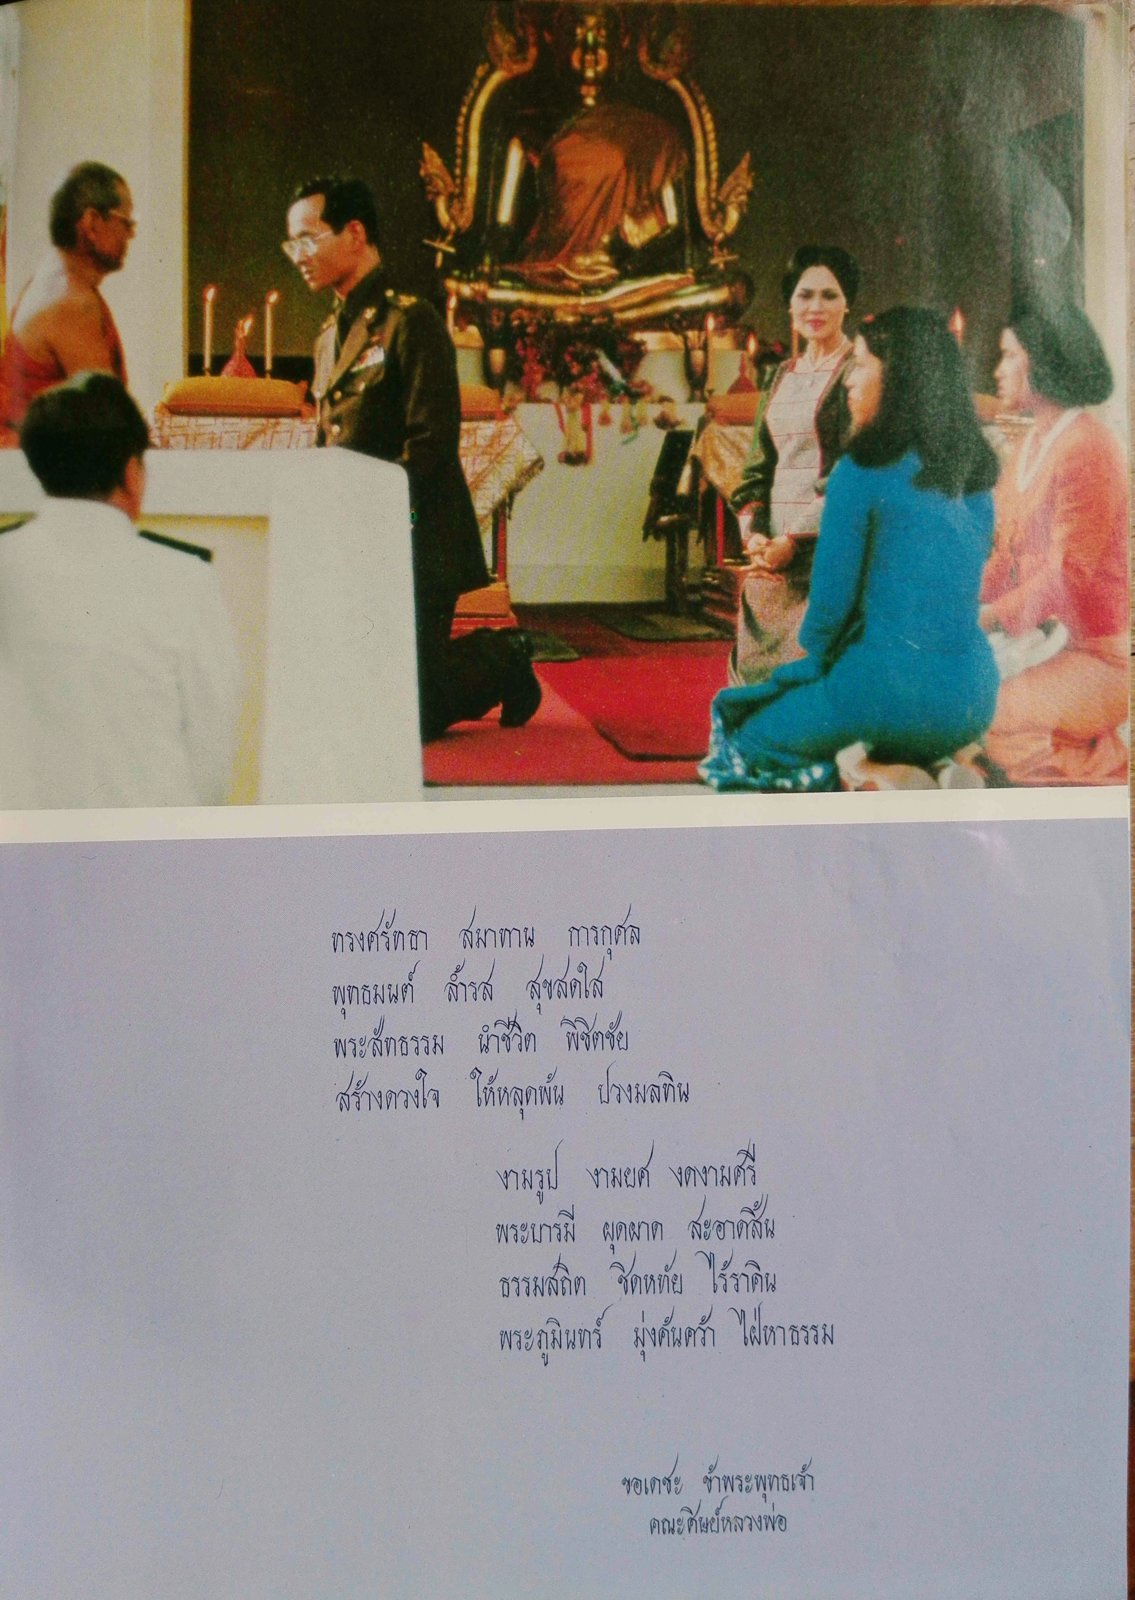 ทรงศรัทธา สมาทาน การกุศล
พุทธมนต์ ล้ำรส สุขสดใส
พระสัทธรรม นำชีวิต พิชิตชัย
สร้างดวงใจ ให้หลุดพ้น ปวงมลทิน
งามรูป งามยศ งดงามศรี
พระบารมี ผุดผาด สะอาดสิ้น
ธรรมสถิต ชิดหทัย ไร้ราคิน
พระภูมินทร์ มุ่งค้นคว้า ใฝ่หาธรรม
ขอเดชะ ข้าพระพุทธเจ้า
คณะศิษย์หลวงพ่อ